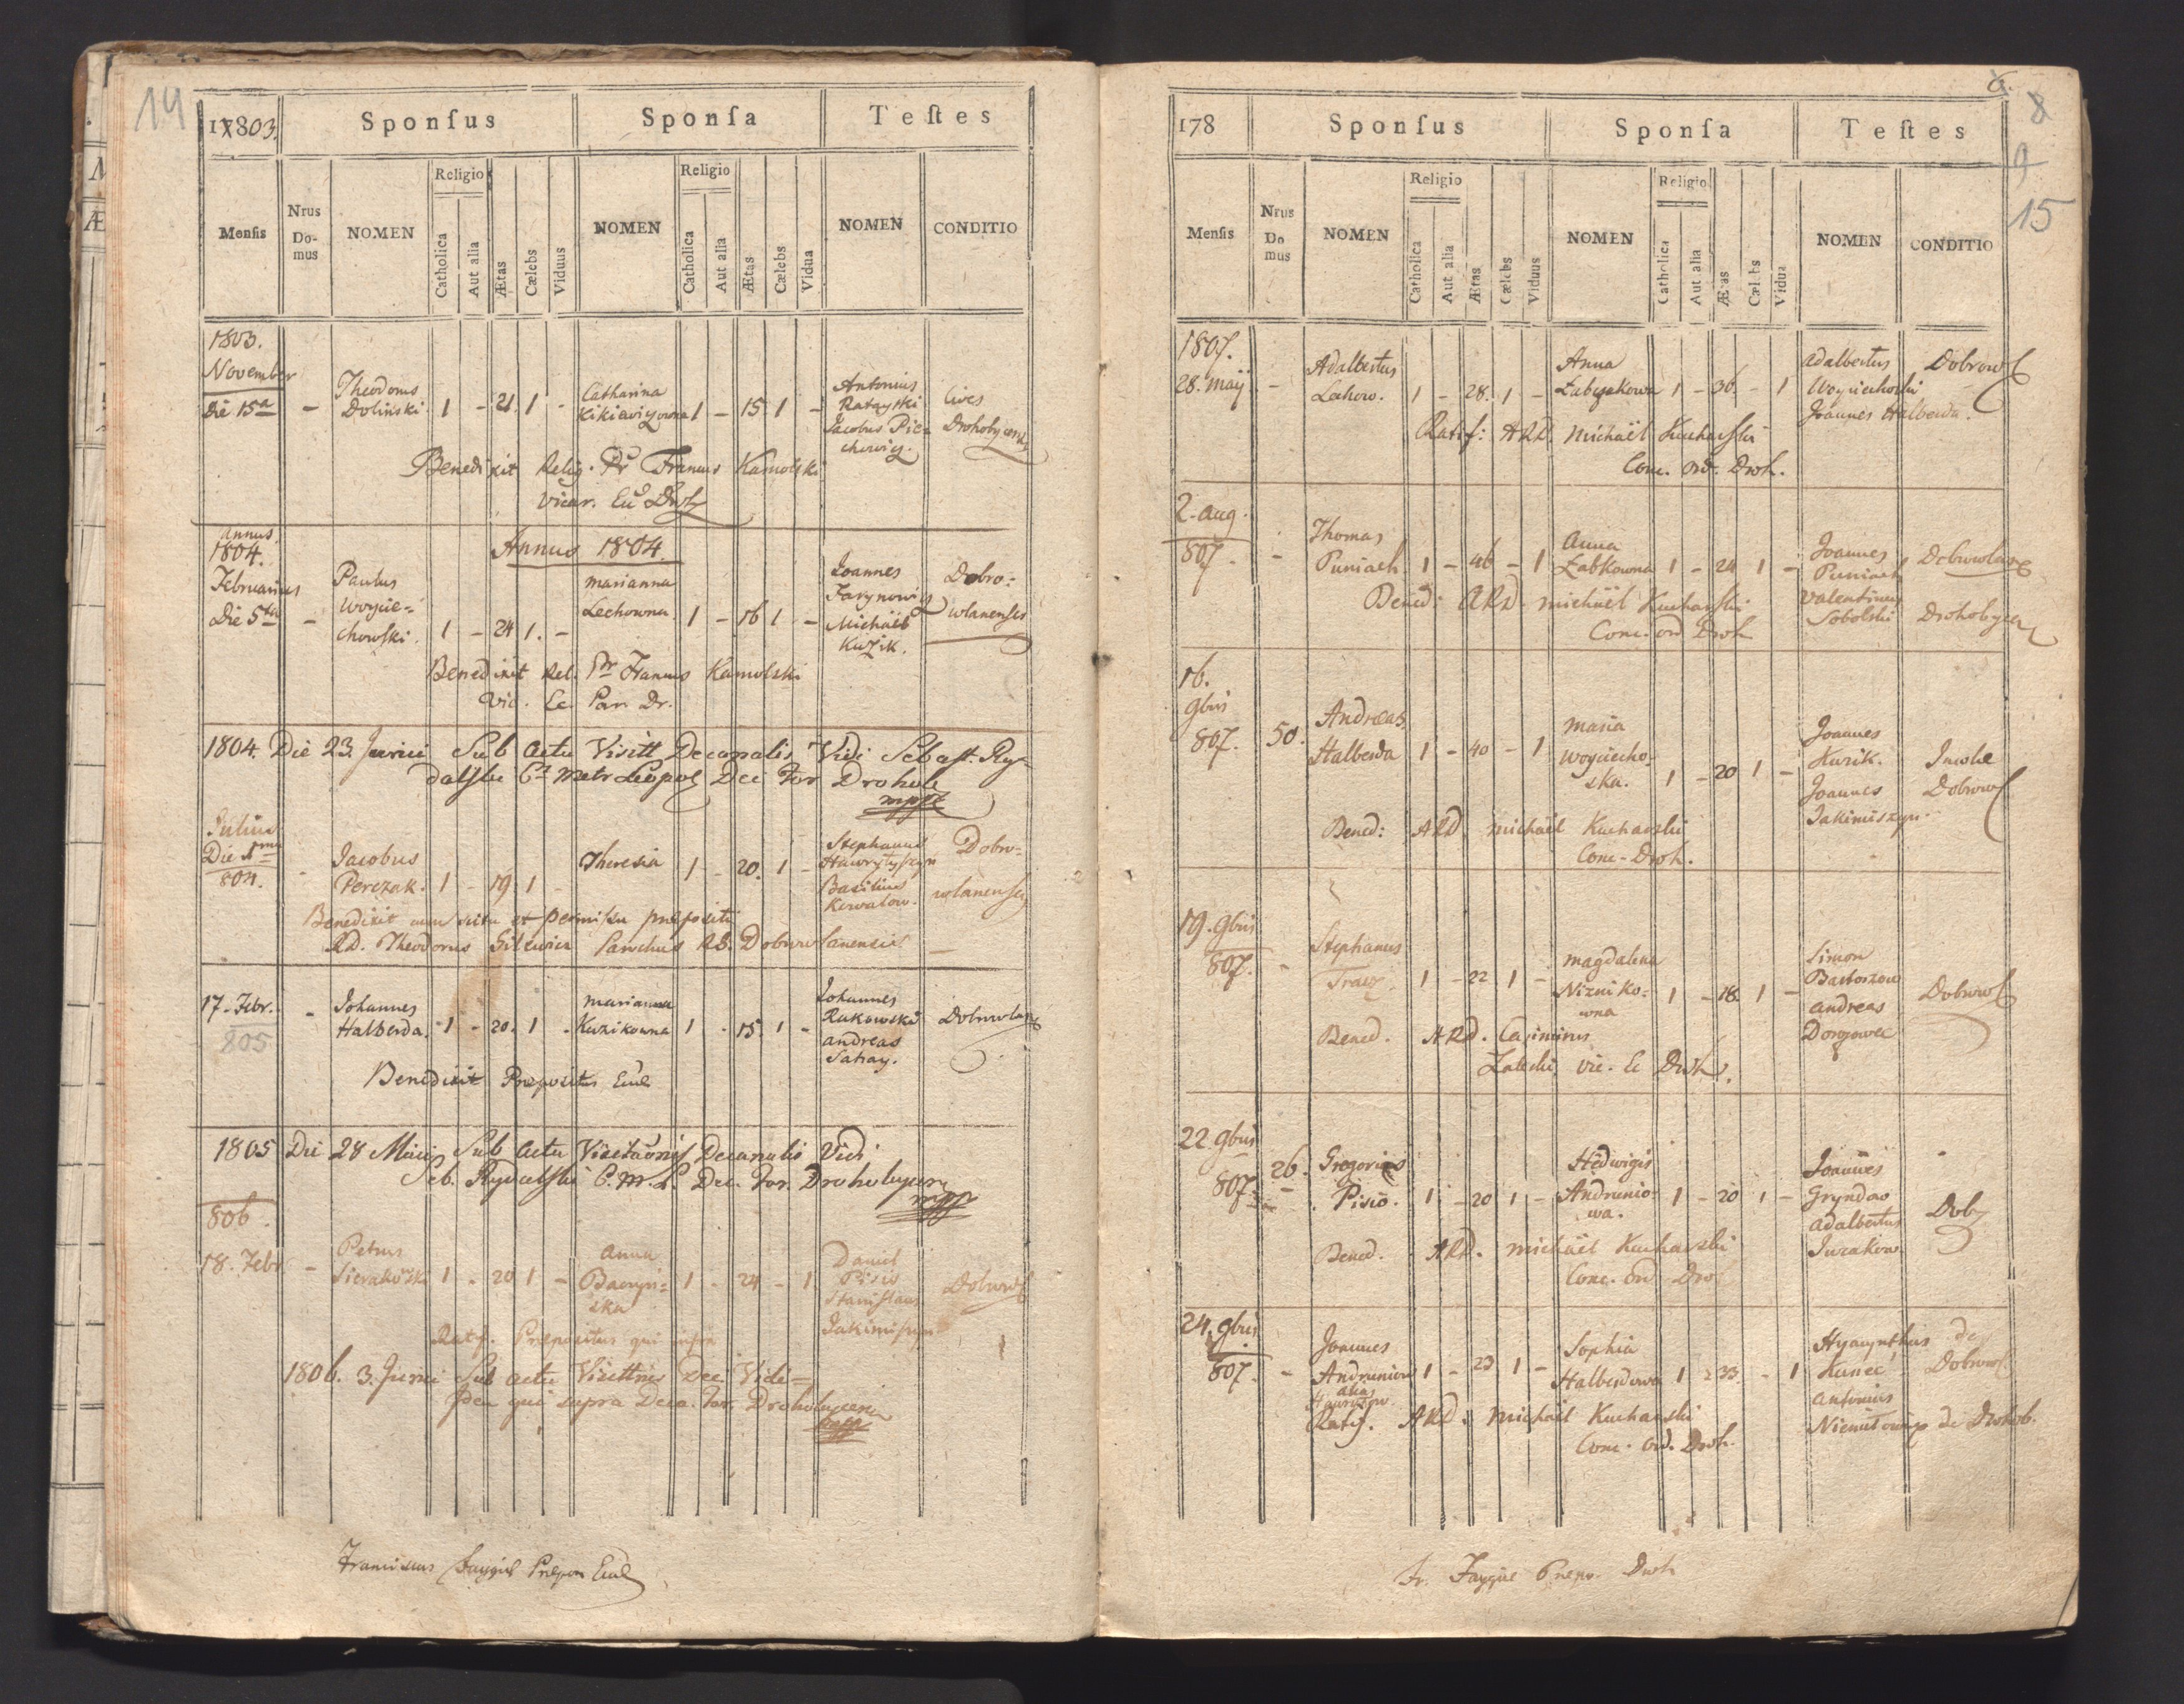 14
1803.
Sponſus
Sponſa
Teſtes
Menſis
Nrus Domus
NOMEN
Religio
Catholica
Aut alia
Ætas
Cælebs
Viduus
NOMEN
Religio
Catholica
Aut alia
Ætas
Cælebs
Vidua
NOMEN
CONDITIO
1803.
November
Die 15ª
-
Theodorus
Dolinski 1 - 21. 1 -
Catharina
Kikiewiczowna 1 - 15. 1 -
Antonius
Ratayski
Jacobus Pie-
chowicz.
Cives
Drohobycens
Benedixit Relig. Pr Francus Kamolski
Vicar.
Annus
1804.
Annus 1804.
Februarius
Die 5ta
-
Paulus
Woycie-
chowski. 1 - 24 1. -
Marianna
Lechowna 1 - 16 1 -
Joannes
Jarynowicz
Michaël
Kuzik.
Dobro-
wlanenses
Benedixit Rel. Pr Francus Kamolski
Vic. Ec. Par. Dr.
1804. Die 23 Junii Sub actu Visitt Decanalis Vidi Sebast. Ry-
dalski Metr Leopol Dec For Drohob
mpp
Julius
Die 1ma
804.
-
Jacobus
Perczak. 1 - 19 1 -
Theresia 1 - 20. 1 -
Stephanus
Hawrytyszyn
Basilius
Kowalow.
Dobro-
wlanenses
Benedixit cum scitu et permissu præpositi
RD. Theodorus Parochus Dobrowlanensis
17. Febr.
805
-
Johannes
Halberda. 1 - 20. 1 -
Marianna
Kuzikowna 1 - 15. 1 -
Johannes
Rakowski
Andreas
Satray.
Benedixit Præpositus
1805 Die 28 Maii Sub actu Visitaonis Decanalis Vidi
Seb. Rydalski C. M. L. Dec. For. Drohobycen
mpp
806.
18. Febr.
-
Petrus
Sierakowski 1 - 20 1 -
Anna
Baczyń-
ska 1 - 24 - 1
Daniel
Pisio
Stanislaus
Jakimiszyn
Ratif. Præpositus qui supra
1806. 3. Junii Sub actu Visittnis Dec. Vidi
Idem qui supra Deca. For. Drohobycen
mpp
6.
8
9
15
178
Sponſus
Sponſa
Teſtes
Menſis
Nrus Domus
NOMEN
Religio
Catholica
Aut alia
Ætas
Cælebs
Viduus
NOMEN
Religio
Catholica
Aut alia
Ætas
Cælebs
Vidua
NOMEN
CONDITIO
1807.
28. Maÿ
-
Adalbertus
Lechow. 1 - 28. 1 -
Anna
1 - 36. - 1
Adalbertus
Woyciechoski
Joannes Halberda.
Dobrowl
Ratif: ARD. Michaël Kucharski
Conc. ord. Droh.
2. Aug.
807.
-
Thomas
Puniach. 1 - 46 - 1
Anna
Łabkowna 1 - 24 1 -
Joannes
Puniach
Valentinus
Sobolski
Drohobycen
Bened: ARD Michaël Kucharski
Conc. ord Droh
16.
9bris
807.
50.
Andreas
Halberda 1 - 40 - 1
Maria
Woyciecho-
ska. 1 - 20 1 -
Joannes
Kuzik.
Joannes
Jakimiszyn.
Incolæ
Dobrowl
Bened: ARD Michaël Kucharski
Conc. Droh.
19. 9bris
807.
-
Stephanus
Tracz. 1 - 22 1 -
Magdalena
Nizniko-
wna 1 - 18. 1 -
Simon
Bartoszow
Andreas
Dobrowl
Bened. ARD. Casimirus
Zaleski, Vic. Ec Droh.
22. 9bris
807.
26.
Gregorius
Pisio. 1 - 20 1 -
Hedwigis
Andrunio-
wa. 1 - 20 1 -
Joannes
Gryndao
Adalbertus
Jurakow
Bened. ARD. Michaël Kucharski
Conc. ord Dro
24. 9bris
807.
-
Joannes
Andruniow 1 - 23 1 -
alias
Sophia
Halberdowa 1 - 33. - 1
Hyacynthus
Kuniec
Antonius
de
Dobrowl
de Drohob.
Ratif. ARD. Michaël Kucharski
Conc. ord. Droh.
Fr. Præpo. Droh